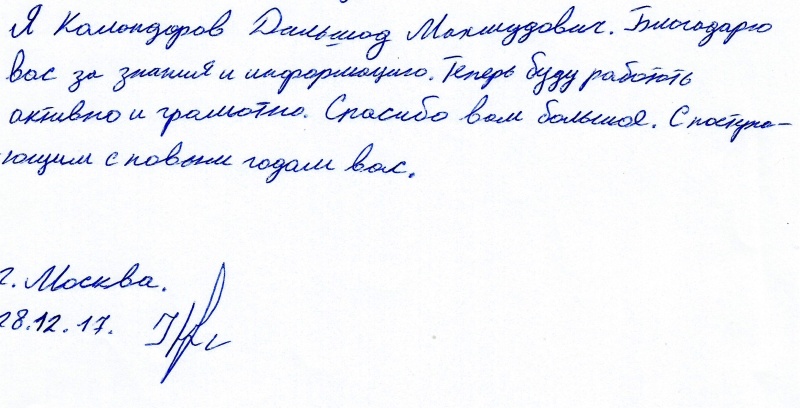 Я Камандоров Дильшод Махмудович. Благодарю
вас за знания и информацию. Теперь буду работать
активно и грамотно. Спасибо вам большое. С поступа-
ющим с новым годам вас.
г. Москва.
28.12.17.